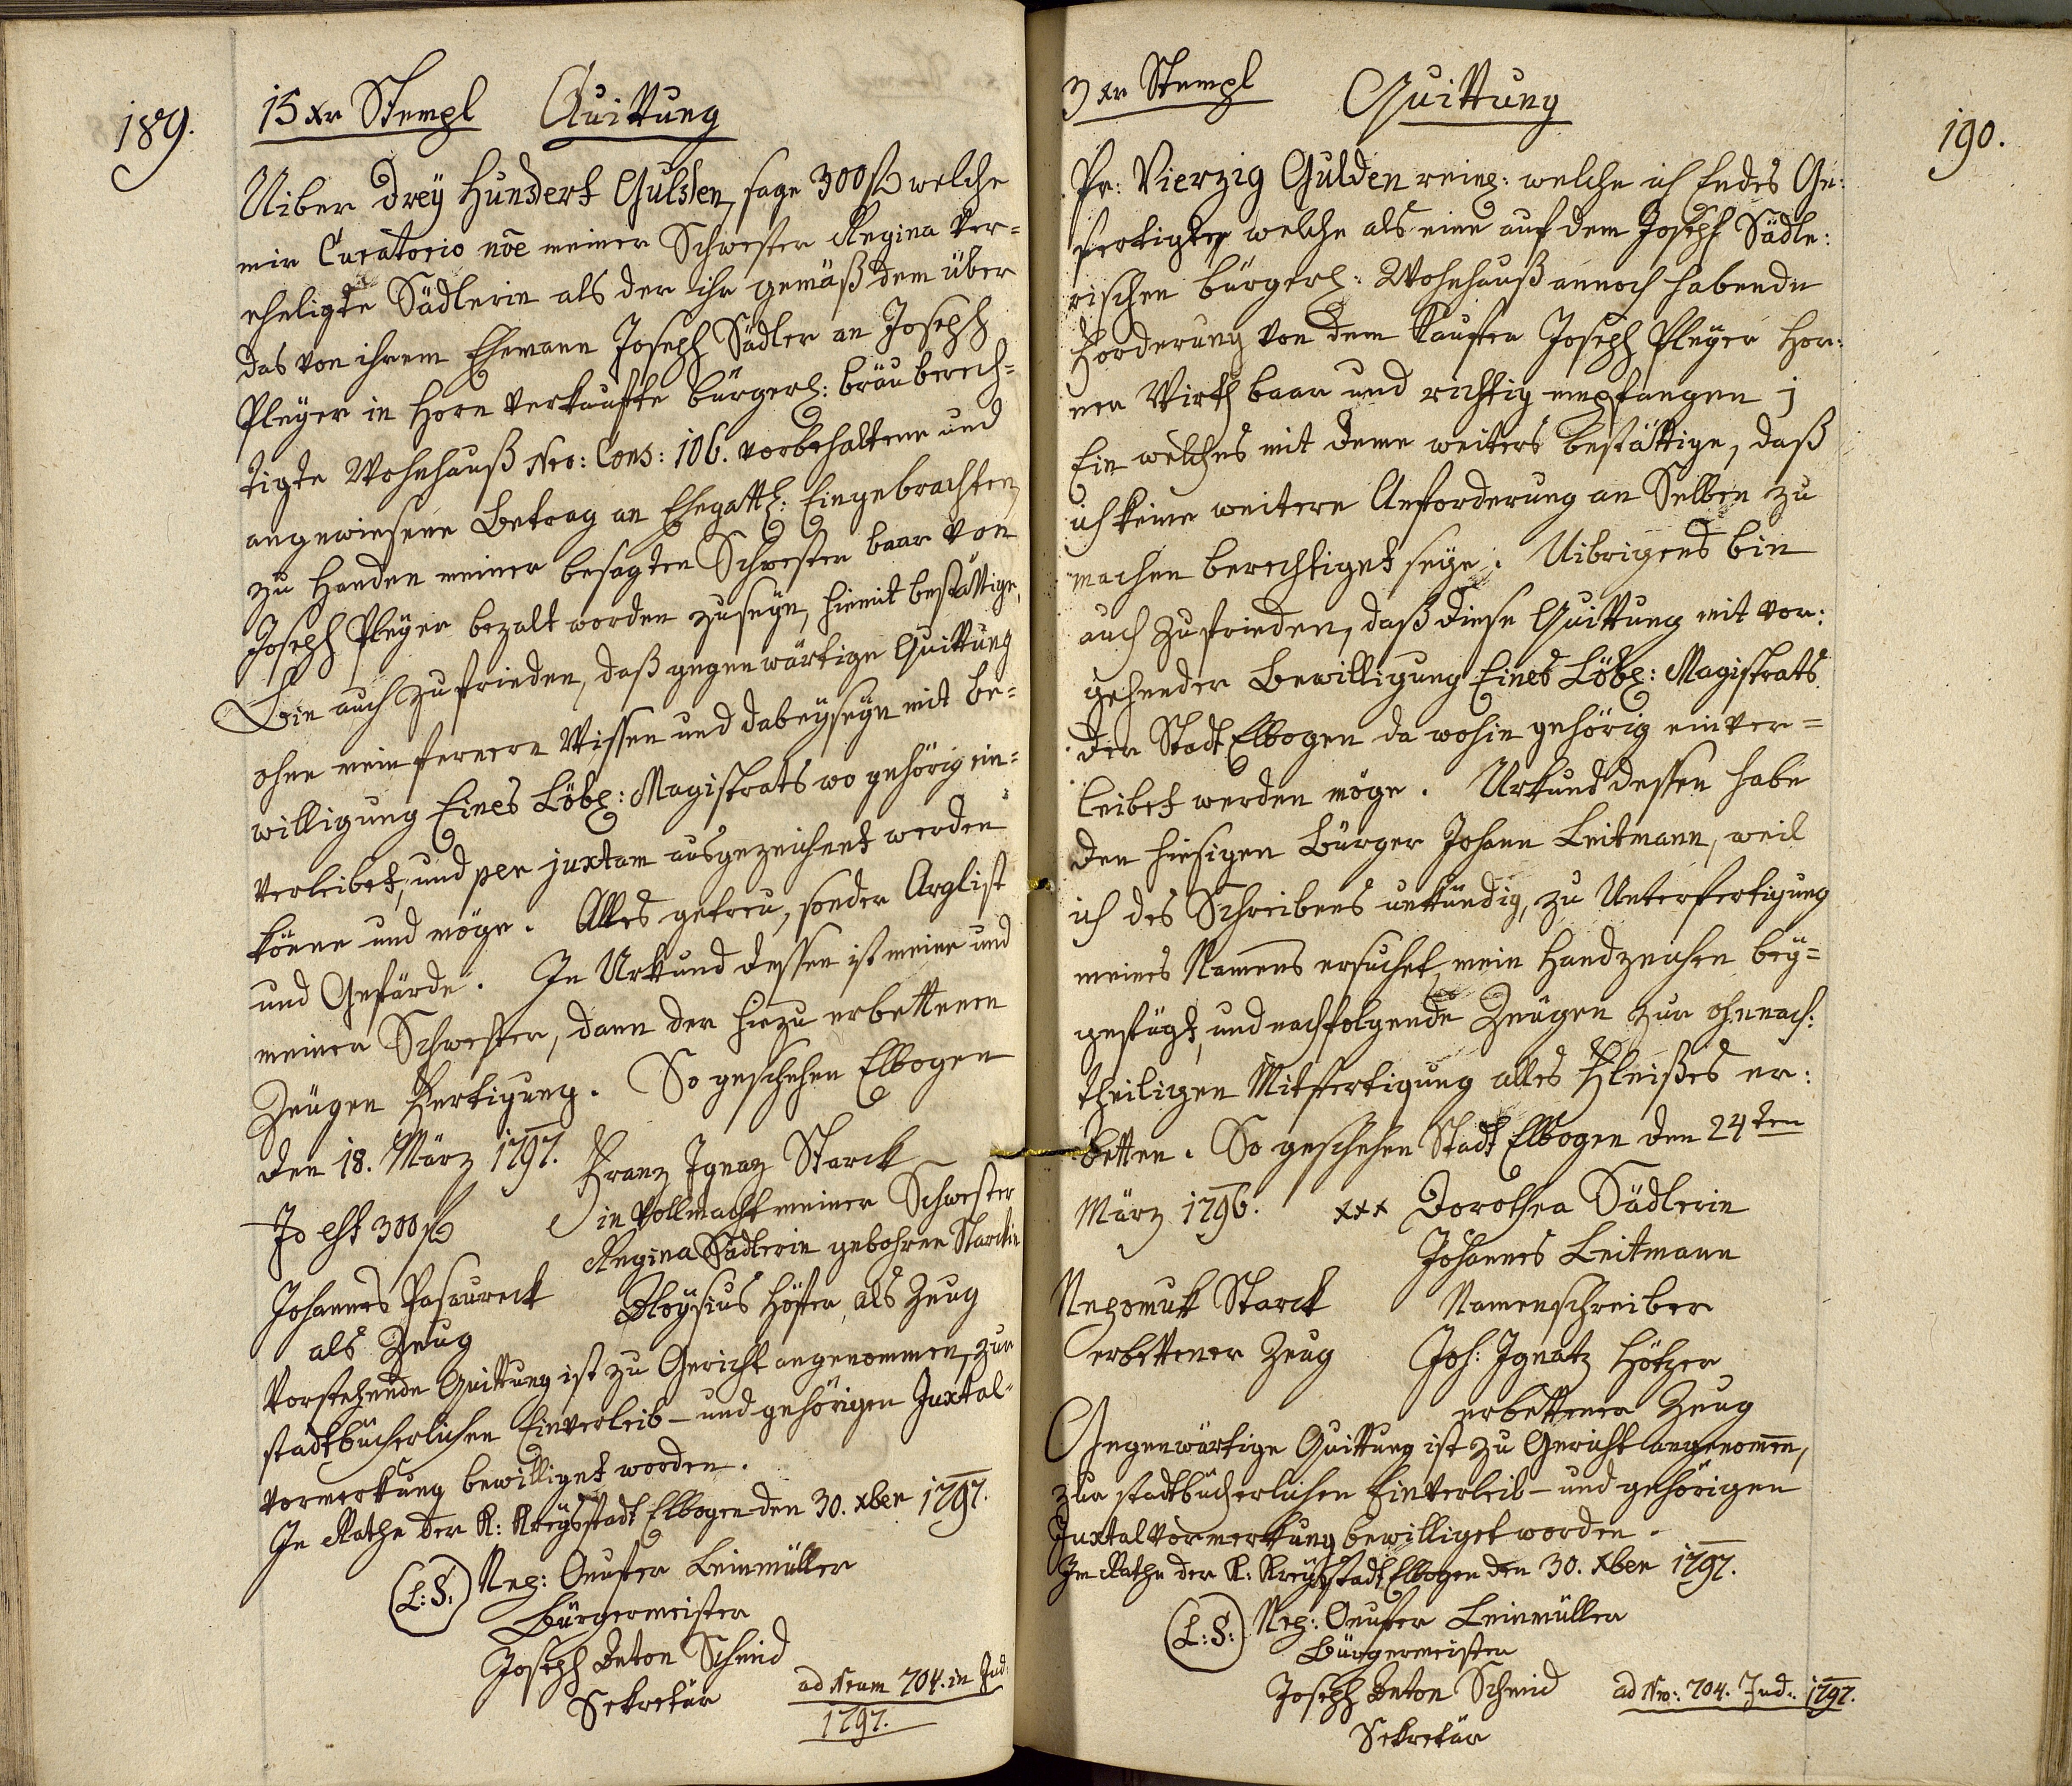 189.
15 xr Stempl Quittung
Uiber Drey Hundert Gulden, sage 300 f welche
mir Curatorio nõe meiner Schwester Regina ver=
eheligte Sädlerin als der ihr gemäß dem über
das von ihrem Ehemann Joseph Sädler an Joseph
Pleyer in Horn verkaufte bürgerl: bräuberech=
tigte Wohnhauß Nro: Cons: 106. vorbehaltene und
angewiesene Betrag an Ehegattl: Eingebrachten,
zu Handen meiner besagten Schwester baar von
Joseph Pleyer bezalt worden zuseyn, hiemit bestättige,
Bin auch zufrieden, daß gegenwärtige Quittung
ohne mein fernern Wissen und dabeyseyn mit be=
willigung Eines Löbl: Magistrats wo gehörig ein=
verleibet, und per juxtam ausgezeichnet werden
könne und möge. Alles getreu, sonder Arglist
und Gefärde. In Urkund dessen ist meine und
meiner Schwester, dann der hiezu erbettenen
Zeugen Fertigung. So geschehen Elbogen
den 18. März 1797. Franz Ignaz Starck
Id est 300 f in Vollmacht meiner Schwester
Regina Sädlerin gebohrne Starckin
Johannes Pasaureck Aloysius Höffer, als Zeug
als Zeug
Vorstehende Quittung ist zu Gericht angenommen, zur
stadtbücherlichen Einverleib- und gehörigen Juxtal=
vormerkung bewilliget worden.
In Rathe der K: Kreysstadt Elbogen den 30. xber 1797.
(L:S:) Nep: Onuffer Leinmüller
Bürgermeister
Joseph Anton Schmid
Sekretär ad Nrum 704. in Jud:
1797.
190.
3 xr Stempl Quittung
Pr: Vierzig Gulden reinl: welche ich Endes Ge:
fertigte welche als eine auf dem Joseph Sädle:
rischen bürgerl: Wohnhauß annoch habende
Forderung von dem Kaufer Joseph Pleyer Hor:
ner Wirth baar und richtig empfangen j
Ein welches mit deme weiters bestättige, daß
ich keine weitere Anforderung an Selben zu
machen berechtiget seye. Uibrigens bin
auch zufrieden, daß diese Quittung mit vor:
gehender Bewilligung Eines Löbl: Magistrats
der Stadt Elbogen da wohin gehörig einver=
leibet werden möge. Urkund dessen habe
den hiesigen Bürger Johann Leitmann, weil
ich des Schreibens unkündig, zu Unterfertigung
meines Namens ersuchet, mein Handzeichen bey=
gefügt, und nachfolgende Zeugen zur ohnnach:
theiligen Mitfertigung alles Fleißes er:
betten. So geschehen Stadt Elbogen den 24ten
März 1796. xxx Dorothea Sädlerin
Johannes Leitmann
Nepomuk Starck Namenschreiber
erbettener Zeug Joh: Ignatz Hötzer
erbettener Zeug
Gegenwärtige Quittung ist zu Gericht angenommen,
zur stadtbücherlichen Einverleib- und gehörigen
Juxtalvormerkung bewilliget worden.
Im Rathe der K: Kreysstadt Elbogen den 30. xber 1797.
(L:S:) Nep: Onuffer Leinmüller
Bürgermeister
Joseph Anton Schmid ad Nro: 704. Jud: 1797.
Sekretär